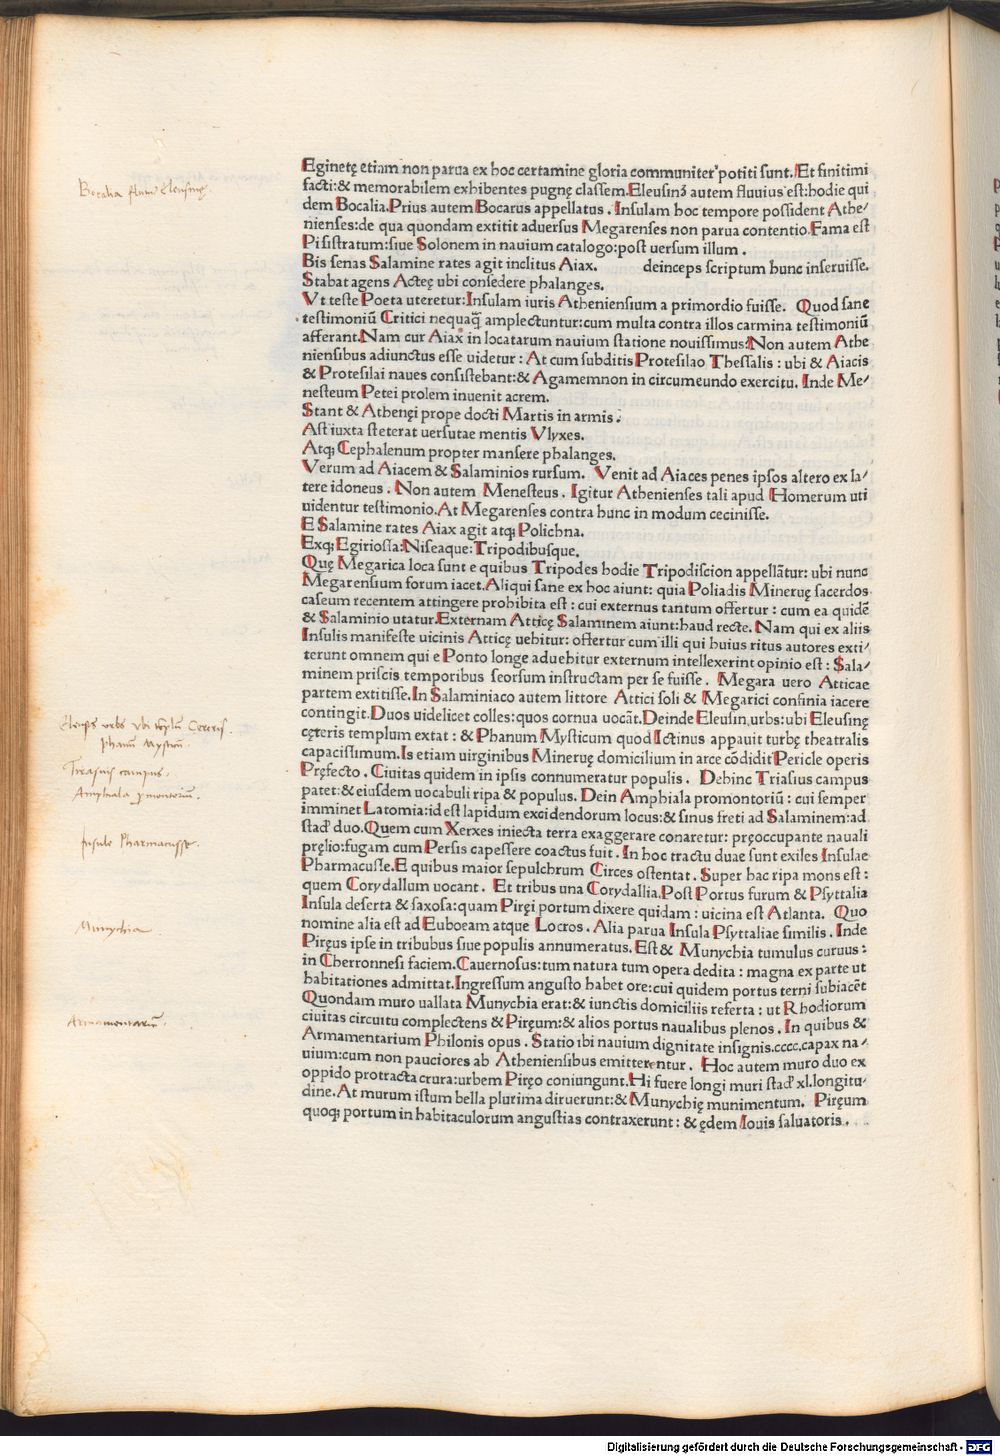 Eginetę etiam non parua ex hoc certamine gloria communiter potiti sunt. Et finitimi
facti: & memorabilem exhibentes pugnę classem. Eleusinꝫ autem fluuius est: hodie qui
dem Bocalia. Prius autem Bocarus appellatus. Insulam hoc tempore possident Athe/
nienses: de qua quondam extitit aduersus Megarenses non parua contentio. Fama est
Pisistratum: siue Solonem in nauium catalogo: post uersum illum.
Bis senas Salamine rates agit inclitus Aiax. deinceps scriptum hunc inseruisse.
Stabat agens Acteę ubi consedere phalanges.
Vt teste Poeta uteretur: Insulam iuris Atheniensium a primordio fuisse. Quod sane
testimoniũ Critici nequaq̃ amplectuntur: cum multa contra illos carmina testimoniũ
afferant. Nam cur Aiax in locatarum nauium statione nouissimus: Non autem Athe
niensibus adiunctus esse uidetur: At cum subditis Protesilao Thessalis: ubi & Aiacis
& Protesilai naues consistebant: & Agamemnon in circumeundo exercitu. Inde Me/
nesteum Petei prolem inuenit acrem.
Stant & Athenęi prope docti Martis in armis:
Ast iuxta steterat uersutae mentis Vlyxes.
Atq; Cephalenum propter mansere phalanges.
Verum ad Aiacem & Salaminios rursum. Venit ad Aiaces penes ipsos altero ex la/
tere idoneus. Non autem Menesteus. Igitur Athenienses tali apud Homerum uti
uidentur testimonio. At Megarenses contra hunc in modum cecinisse.
E Salamine rates Aiax agit atq; Polichna.
Exq; Egiriossa: Niseaque: Tripodibusque.
Quę Megarica loca sunt e quibus Tripodes hodie Tripodiscion appellãtur: ubi nunc
Megarensium forum iacet. Aliqui sane ex hoc aiunt: quia Poliadis Mineruę sacerdos
caseum recentem attingere prohibita est: cui externus tantum offertur: cum ea quidẽ
& Salaminio utatur. Externam Atticę Salaminem aiunt: haud recte. Nam qui ex aliis
Insulis manifeste uicinis Atticę uehitur: offertur cum illi qui huius ritus autores exti/
terunt omnem qui e Ponto longe aduehitur externum intellexerint opinio est: Sala/
minem priscis temporibus seorsum instructam per se fuisse. Megara uero Atticae
partem extitisse. In Salaminiaco autem littore Attici soli & Megarici confinia iacere
contingit. Duos uidelicet colles: quos cornua uocãt. Deinde Eleusin, urbs: ubi Eleusinę
cęteris templum extat: & Phanum Mysticum quod Ictinus appauit turbę theatralis
capacissimum. Is etiam uirginibus Mineruę domicilium in arce cõdidit Pericle operis
Pręfecto. Ciuitas quidem in ipsis connumeratur populis. Dehinc Triasius campus
patet: & eiusdem uocabuli ripa & populus. Dein Amphiala promontoriũ: cui semper
imminet Latomia: id est lapidum excidendorum locus: & sinus freti ad Salaminem: ad
stad' duo. Quem cum Xerxes iniecta terra exaggerare conaretur: pręoccupante nauali
pręlio: fugam cum Persis capessere coactus fuit. In hoc tractu duae sunt exiles Insulae
Pharmacusse. E quibus maior sepulchrum Circes ostentat. Super hac ripa mons est:
quem Corydallum uocant. Et tribus una Corydallia. Post Portus furum & Psyttalia
Insula deserta & saxosa: quam Piręi portum dixere quidam: uicina est Atlanta. Quo
nomine alia est ad Euboeam atque Locros. Alia parua Insula Psyttaliae similis. Inde
Piręus ipse in tribubus siue populis annumeratus. Est & Munychia tumulus curuus:
in Cherronnesi faciem. Cauernosus: tum natura tum opera dedita: magna ex parte ut
habitationes admittat. Ingressum angusto habet ore: cui quidem portus terni subiacẽt
Quondam muro uallata Munychia erat: & iunctis domiciliis referta: ut Rhodiorum
ciuitas circuitu complectens & Piręum: & alios portus naualibus plenos. In quibus &
Armamentarium Philonis opus. Statio ibi nauium dignitate insignis. cccc. capax na/
uium: cum non pauciores ab Atheniensibus emitterentur. Hoc autem muro duo ex
oppido protracta crura: urbem Piręo coniungunt. Hi fuere longi muri stad' xl. longitu/
dine. At murum istum bella plurima diruerunt: & Munychię munimentum. Piręum
quoq; portum in habitaculorum angustias contraxerunt: & ędem Iouis saluatoris.
Bocalia flum Eleusinę.
Eleusis urbs ubi templũ Cereris.
phanũ Mysticũ.
Triasius campus.
Amphiala pmontoriũ.
Insule Pharmacusse.
Munychia
Armamentariũ.
Digitalisierung gefördert durch die Deutsche Forschungsgemeinschaft - DFG